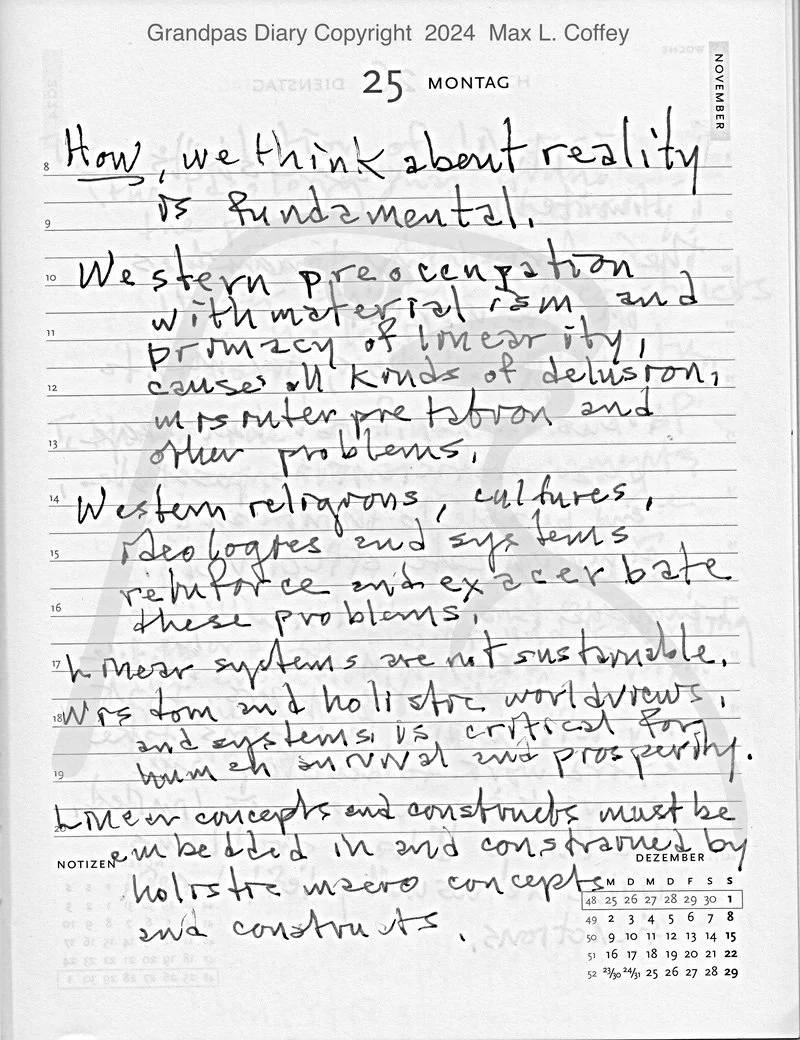 Grandpas Diary Copyright 2024 Max L. Coffey
25 MONTAG
NOVEMBER
8 How, we think about reality
is fundamental.
9
10 Western preoccupation
with materialism and
11 primacy of linearity,
causes all kinds of delusion,
12 misinterpretation and
13 other problems.
14 Western religions, cultures,
ideologies and systems
15 reinforce and exacerbate
16 these problems.
17 Linear systems are not sustainable.
18 Wisdom and holistic worldviews,
and systems, is critical for
19 human survival and prosperity.
20 Linear concepts and constructs must be
embedded in and constrained by
holistic macro concepts
and constructs.
NOTIZEN
DEZEMBER
M D M D F S S
48 25 26 27 28 29 30 1
49 2 3 4 5 6 7 8
50 9 10 11 12 13 14 15
51 16 17 18 19 20 21 22
52 23/30 24/31 25 26 27 28 29